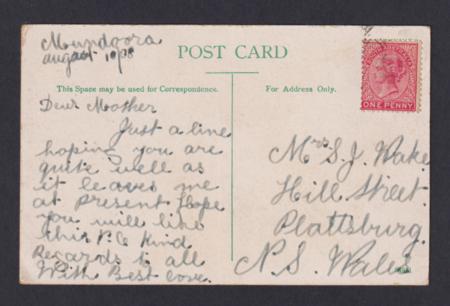 Mundoora
august 10/08
POST CARD
This Space may be used for Correspondence.
For Address Only.
Dear Mother
Just a line
hoping you are
quite well as
it leaves me
at Present Hope
you will like
this P.C Kind
Regards to all
With Best Love.
ONE PENNY
Mrs S.J. Wake
Hill Street
Plattsburg
N.S. Wales